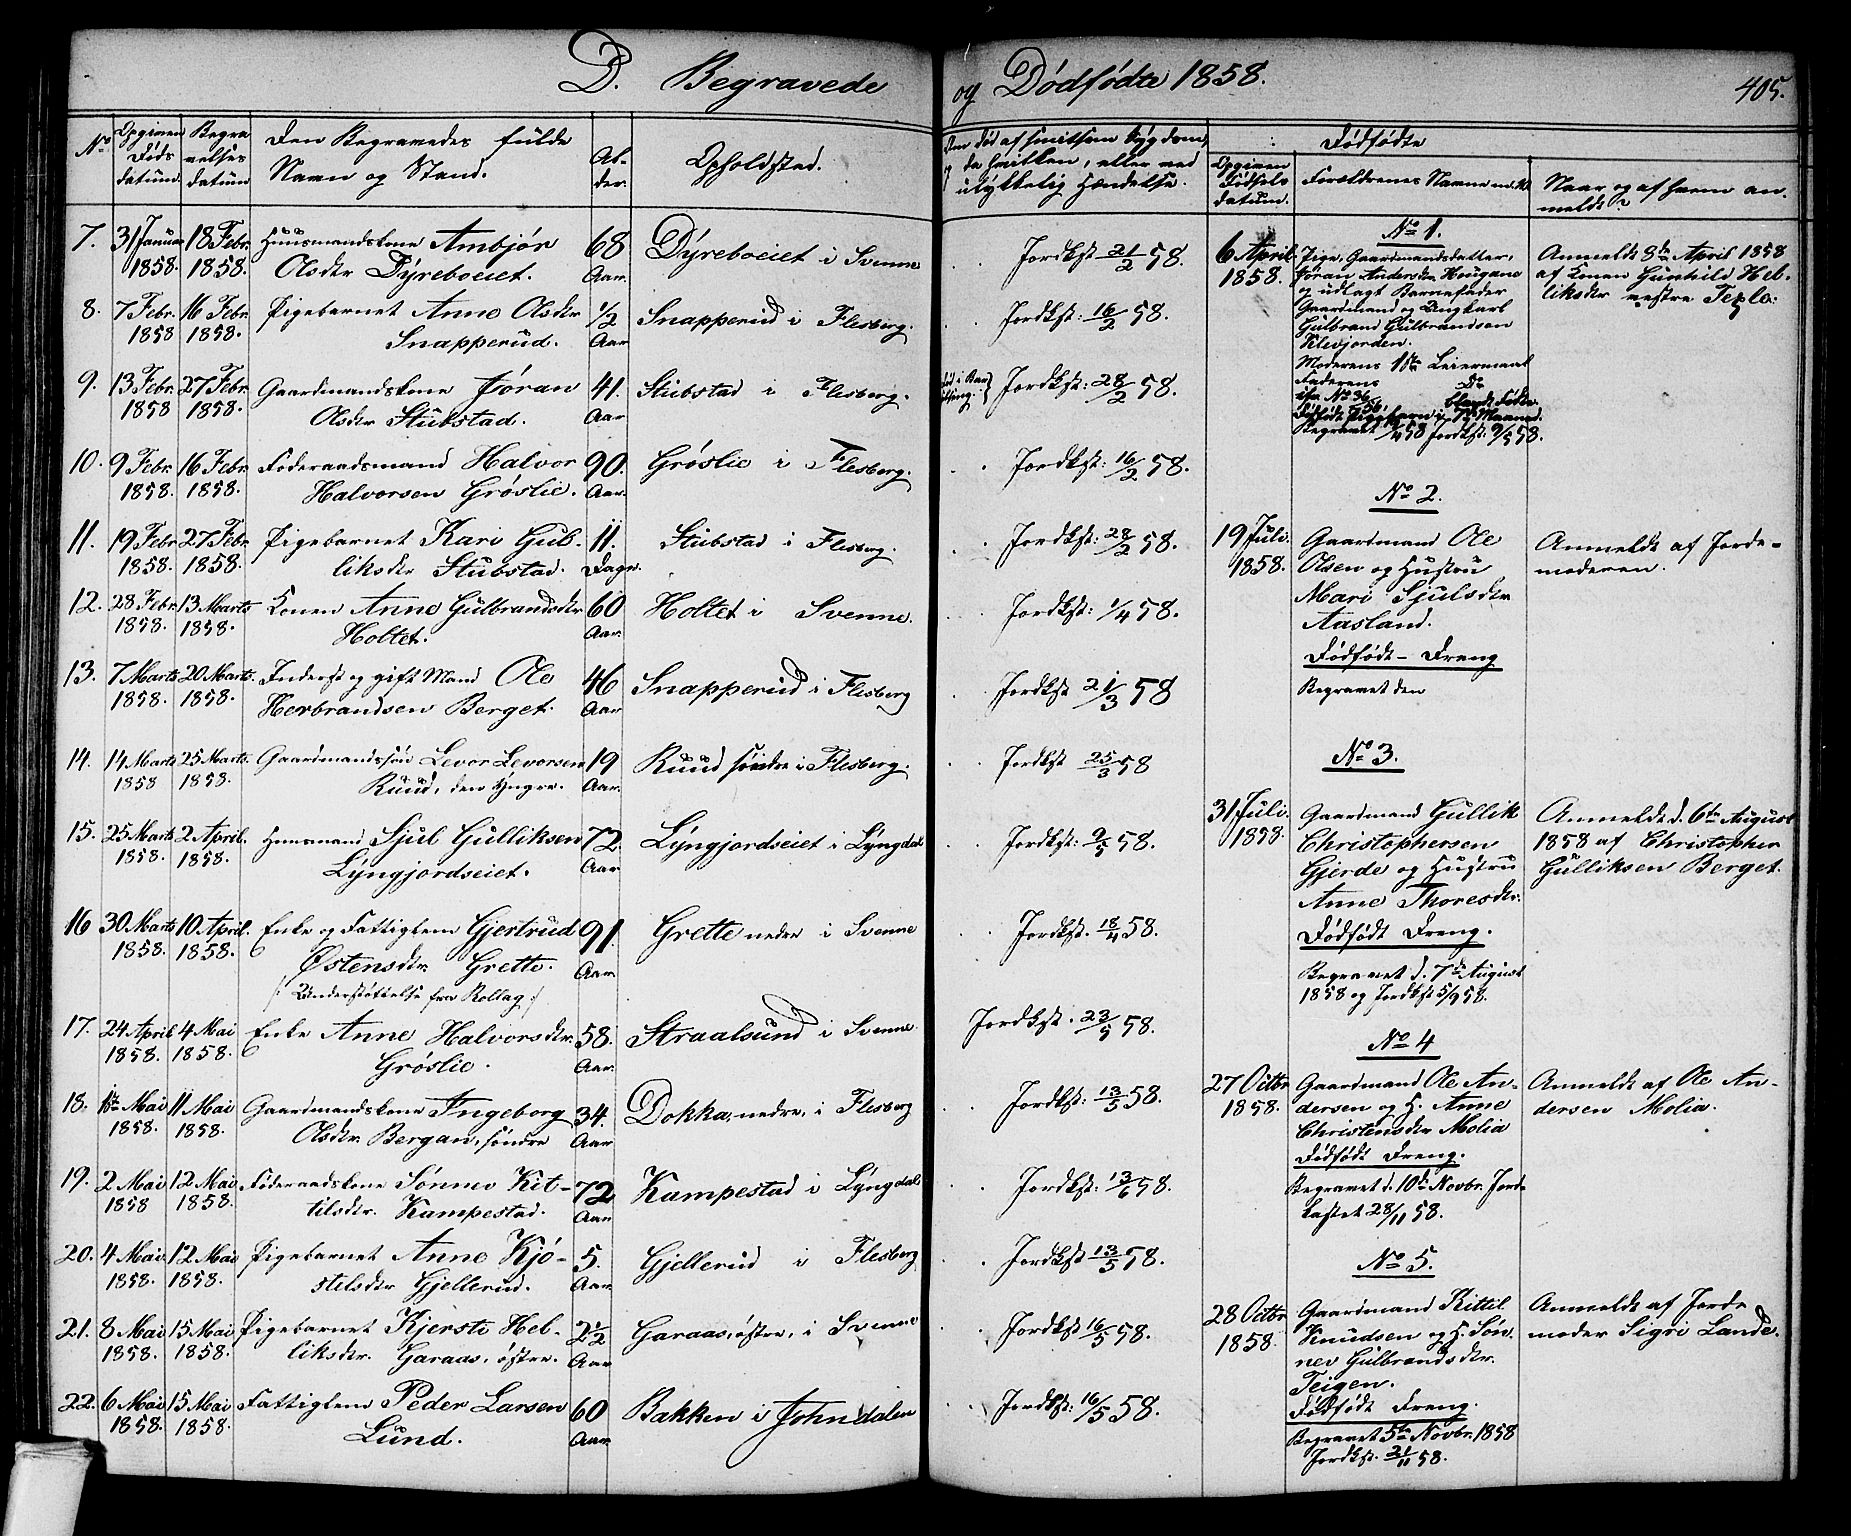 D. Begravede
og Dødfødte 1858.
405.
No
Opgiven Døds datum.
Begravelses datum
Den Begravedes fulde
Navn og Stand.
Alder.
Opholdsted.
Om død af smitsom Sygdom,
ulykkelig Hændelse.
Dødfødte
Opgiven Fødsels datum.
Forældrenes Navne
Naar og af hvem anmeldt?
7. 31 Januar 18 Febr. Huusmandskone Ambjør 68 Dyreboeiet i Svenne Jordkst. 21/2 58.
1858. 1858. Olsdtr Dyreboeiet. Aar.
8. 7 Febr. 16 Febr. Pigebarnet Anne Olsdtr 1/2 Snapperud i Flesberg. Jordkst: 16/2 58.
1858 1858. Snapperud. Aar
9. 13 Febr. 27 Febr. Gaardmandskone Jøran 41. Stubstad i Flesberg. Jordkst: 28/2 58.
1858 1858. Olsdtr Stubstad. Aar
10. 9 Febr. 16 Febr. Føderaadsmand Halvor 90. Grøslie i Flesberg. Jordkst: 16/2 58.
1858. 1858. Halvorsen Grøslie. Aar.
11. 19 Febr. 27 Febr. Pigebarnet Kari Gul- 11. Stubstad i Flesberg. Jordkst: 28/2 58.
1858. 1858. liksdtr Stubstad. Dage.
12. 28 Febr. 13 Marts Konen Anne Gulbrandsdtr 60 Holtet i Svenne. Jordkst: 1/4 58.
1858. 1858. Holtet. Aar.
13. 7 Marts 20 Marts. Inderst og gift Mand Ole 46 Snapperud i Flesberg Jordkst 21/3 58
1858. 1858. Herbrandsen Berget. Aar
14. 14 Marts 25 Marts. Gaardmandssøn Levor Levorsen 19 Ruud søndre i Flesberg. Jordkst 25/3 58
1858 1858. Ruud, den Yngre. Aar.
15. 25 Marts 2 April. Huusmand Sjul Gulliksen 72. Lyngjordseiet i Lyngdal Jordkst: 9/5 58.
1858. 1858. Lyngjordseiet. Aar
16 30 Marts 10 April. Enke og Fattiglem Gjertrud 91. Grette nedre i Svenne Jordkst. 18/4 58.
1858. 1858. Østensdtr. Grette. Aar
/: Understøttelse fra Rollag :/
17. 24 April 4 Mai Enke Anne Halvorsdtr. 58. Straalsund i Svenne Jordkst. 23/5 58.
1858. 1858. Grøslie. Aar.
18. 1ste Mai 11 Mai Gaardmandskone Ingeborg 34. Dokka, nedre, i Flesberg Jordkst: 13/5 58.
1858. 1858. Olsdtr. Bergan, søndre Aar
19. 2 Mai 12 Mai Føderaadskone Sønnev Kit- 72 Kampestad i Lyngdal Jordkst: 13/6 58.
1858 1858. tilsdtr. Kampestad. Aar
20. 4 Mai 12 Mai Pigebarnet Anne Kjø- 5. Gjellerud i Flesberg Jordkst: 13/5 58.
1858. 1858. stelsdtr Gjellerud. Aar
21. 8 Mai 15 Mai Pigebarnet Kjersti Hel- 2 1/2 Garaas, østre, i Svenne Jordkst: 16/5 58.
1858. 1858. liksdtr. Garaas, østre. Aar
22. 6 Mai 15 Mai Fattiglem Peder Larsen 60 Bakken i Johndalen Jordkst: 16/5 58.
1858. 1858. Lund. Aar.
No 1.
6 April 1858.
Pige, Gaardmandsdatter,
Jøran Andersdtr Hougane
og udlagt Barnefader
Gaardmand og Ungkarl
Gulbrand Gulbrandsen
Klevjorden.
Moderens 1ste Leiermaal
Faderens Do
blandt Fødte.
Anmeldt 8de April 1858
af Konen Gunhild Hel-
liksdtr vestre
No 2.
19 Juli. 1858.
Gaardmand Ole
Olsen og Hustru
Mari Sjulsdtr
Aasland.
Dødfødt - Dreng
Begravet den
Anmeldt af Jorde-
moderen.
No 3.
31 Juli. 1858.
Gaardmand Gullik
Christophersen
Gjerde og Hustru
Anne Thoresdtr.
Dødfødt Dreng.
Begravet d. 7de August
1858 og Jordkst 5/9 58.
Anmeldt d. 6te August
1858 af Christopher
Gulliksen Berget.
No 4
27 Octbr 1858.
Gaardmand Ole An-
dersen og H. Anne
Christensdtr Molia
Dødfødt Dreng.
Begravet d. 10de Novbr. Jord-
kastet 28/11 58.
Anmeldt af Ole An-
dersen Molia.
No 5.
28 Octbr 1858.
Gaardmand Kittil
Knudsen og H. Søn-
nev Gulbrandsdtr.
Teigen.
Dødfødt Dreng.
Begravet 5te Novbr. 1858
Jordkst. 21/11 58.
Anmeldt af Jorde
moder Sigri Lande.